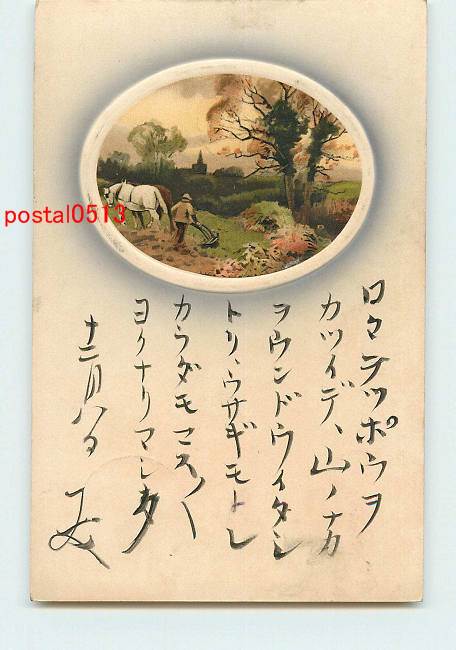 postal0513
日々テッポウヲ
カツイデ、山ノナカ
ヲウンドウイタシ
トリ、ウサギモトレ
カラダモマス〱
ヨクナリマシタ
十二月八日